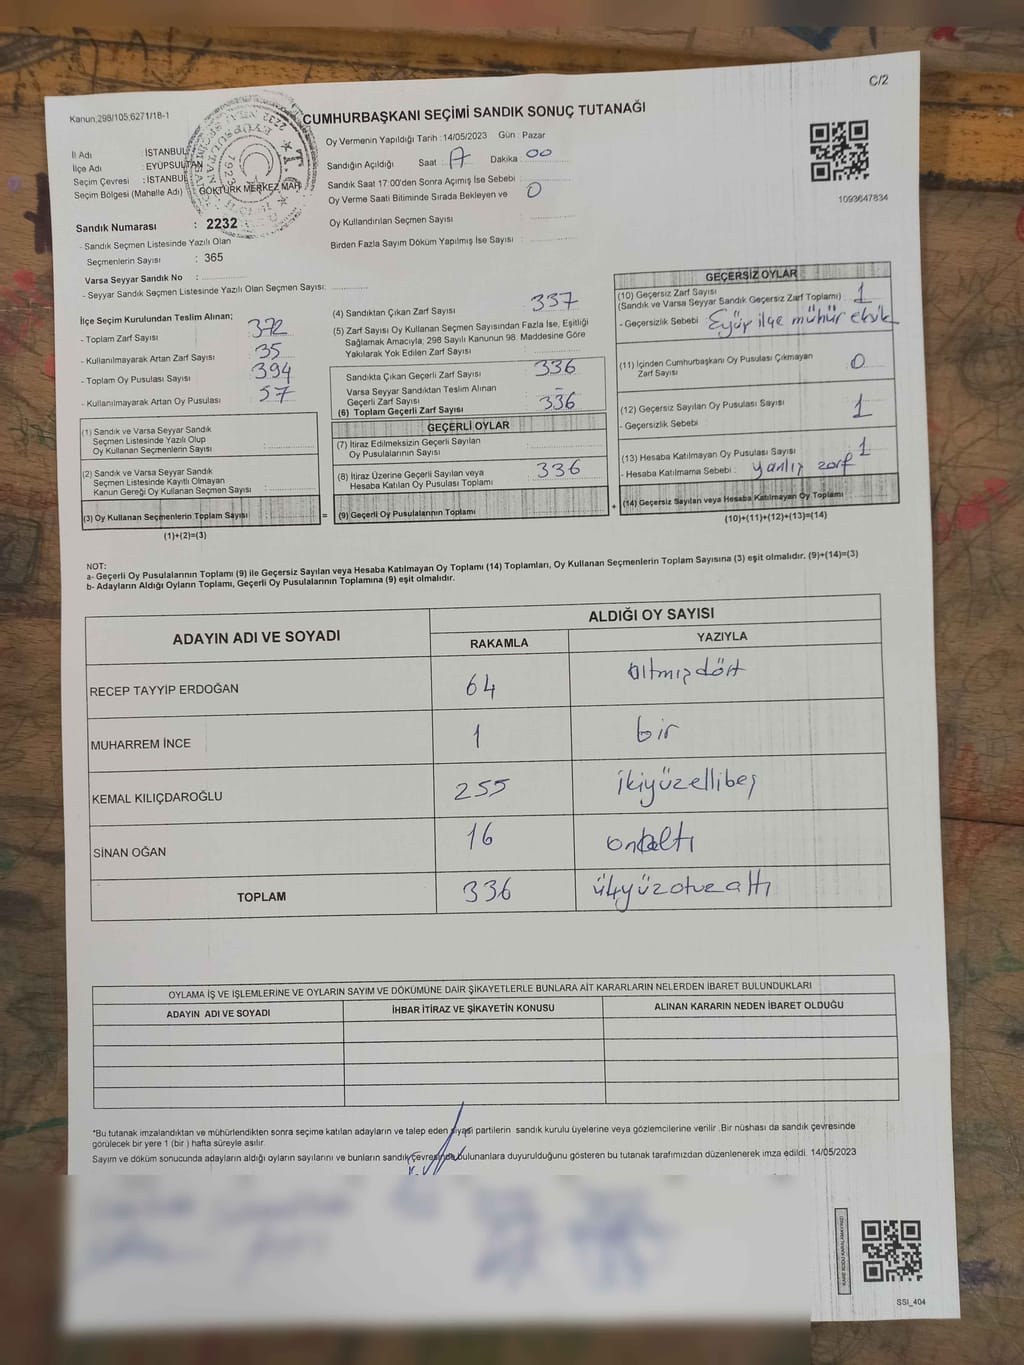 C/2
Kanun;298/105;6271/18-1
CUMHURBAŞKANI SEÇİMİ SANDIK SONUÇ TUTANAĞI
İl Adı : İSTANBUL
İlçe Adı : EYÜPSULTAN
Seçim Çevresi : İSTANBUL
Seçim Bölgesi (Mahalle Adı) : GÖKTÜRK MERKEZ MAH.
Sandık Numarası : 2232
- Sandık Seçmen Listesinde Yazılı Olan
Seçmenlerin Sayısı : 365
Varsa Seyyar Sandık No :
- Seyyar Sandık Seçmen Listesinde Yazılı Olan Seçmen Sayısı:
Oy Vermenin Yapıldığı Tarih : 14/05/2023 Gün : Pazar
Sandığın Açıldığı Saat : 17 Dakika : 00
Sandık Saat 17:00'den Sonra Açımış İse Sebebi
Oy Verme Saati Bitiminde Sırada Bekleyen ve 0
Oy Kullandırılan Seçmen Sayısı
Birden Fazla Sayım Döküm Yapılmış İse Sayısı :
1093647834
İlçe Seçim Kurulundan Teslim Alınan;
- Toplam Zarf Sayısı 372
- Kullanılmayarak Artan Zarf Sayısı 35
- Toplam Oy Pusulası Sayısı 394
- Kullanılmayarak Artan Oy Pusulası 57
(1) Sandık ve Varsa Seyyar Sandık
Seçmen Listesinde Yazılı Olup
Oy Kullanan Seçmenlerin Sayısı :
(2) Sandık ve Varsa Seyyar Sandık
Seçmen Listesinde Kayıtlı Olmayan
Kanun Gereği Oy Kullanan Seçmen Sayısı :
(3) Oy Kullanan Seçmenlerin Toplam Sayısı
(1)+(2)=(3)
(4) Sandıktan Çıkan Zarf Sayısı 337
(5) Zarf Sayısı Oy Kullanan Seçmen Sayısından Fazla İse, Eşitliği
Sağlamak Amacıyla, 298 Sayılı Kanunun 98. Maddesine Göre
Yakılarak Yok Edilen Zarf Sayısı
Sandıkta Çıkan Geçerli Zarf Sayısı 336
Varsa Seyyar Sandıktan Teslim Alınan
Geçerli Zarf Sayısı –
(6) Toplam Geçerli Zarf Sayısı 336
GEÇERLİ OYLAR
(7) İtiraz Edilmeksizin Geçerli Sayılan
Oy Pusulalarının Sayısı
(8) İtiraz Üzerine Geçerli Sayılan veya 336
Hesaba Katılan Oy Pusulası Toplamı
= (9) Geçerli Oy Pusulalarının Toplamı
GEÇERSİZ OYLAR
(10) Geçersiz Zarf Sayısı
(Sandık ve Varsa Seyyar Sandık Geçersiz Zarf Toplamı) 1
- Geçersizlik Sebebi : Eyüp ilçe mühür eksik
(11) İçinden Cumhurbaşkanı Oy Pusulası Çıkmayan
Zarf Sayısı 0
(12) Geçersiz Sayılan Oy Pusulası Sayısı 1
- Geçersizlik Sebebi
(13) Hesaba Katılmayan Oy Pusulası Sayısı 1
- Hesaba Katılmama Sebebi : yanlış zarf
+ (14) Geçersiz Sayılan veya Hesaba Katılmayan Oy Toplamı
(10)+(11)+(12)+(13)=(14)
NOT:
a- Geçerli Oy Pusulalarının Toplamı (9) ile Geçersiz Sayılan veya Hesaba Katılmayan Oy Toplamı (14) Toplamları, Oy Kullanan Seçmenlerin Toplam Sayısına (3) eşit olmalıdır. (9)+(14)=(3)
b- Adayların Aldığı Oyların Toplamı, Geçerli Oy Pusulalarının Toplamına (9) eşit olmalıdır.
ADAYIN ADI VE SOYADI ALDIĞI OY SAYISI
RAKAMLA YAZIYLA
RECEP TAYYİP ERDOĞAN 64 altmışdört
MUHARREM İNCE 1 bir
KEMAL KILIÇDAROĞLU 255 ikiyüzellibeş
SİNAN OĞAN 16 onaltı
TOPLAM 336
OYLAMA İŞ VE İŞLEMLERİNE VE OYLARIN SAYIM VE DÖKÜMÜNE DAİR ŞİKAYETLERLE BUNLARA AİT KARARLARIN NELERDEN İBARET BULUNDUKLARI
ADAYIN ADI VE SOYADI İHBAR İTİRAZ VE ŞİKAYETİN KONUSU ALINAN KARARIN NEDEN İBARET OLDUĞU
*Bu tutanak imzalandıktan ve mühürlendikten sonra seçime katılan adayların ve talep eden siyasi partilerin sandık kurulu üyelerine veya gözlemcilerine verilir .Bir nüshası da sandık çevresinde
görülecek bir yere 1 (bir ) hafta süreyle asılır.
Sayım ve döküm sonucunda adayların aldığı oyların sayılarını ve bunların sandık çevresinde bulunanlara duyurulduğunu gösteren bu tutanak tarafımızdan düzenlenerek imza edildi. 14/05/2023
SSI_404